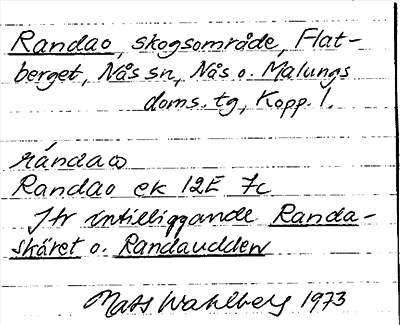 Randao, skogsområde, Flat-
berget, Nås sn, Nås o. Malungs
doms. tg, Kopp. l.
Randao ek 12E 7c
Jfr intilliggande Randa-
skäret o. Randaudden
Mats Wahlberg 1973